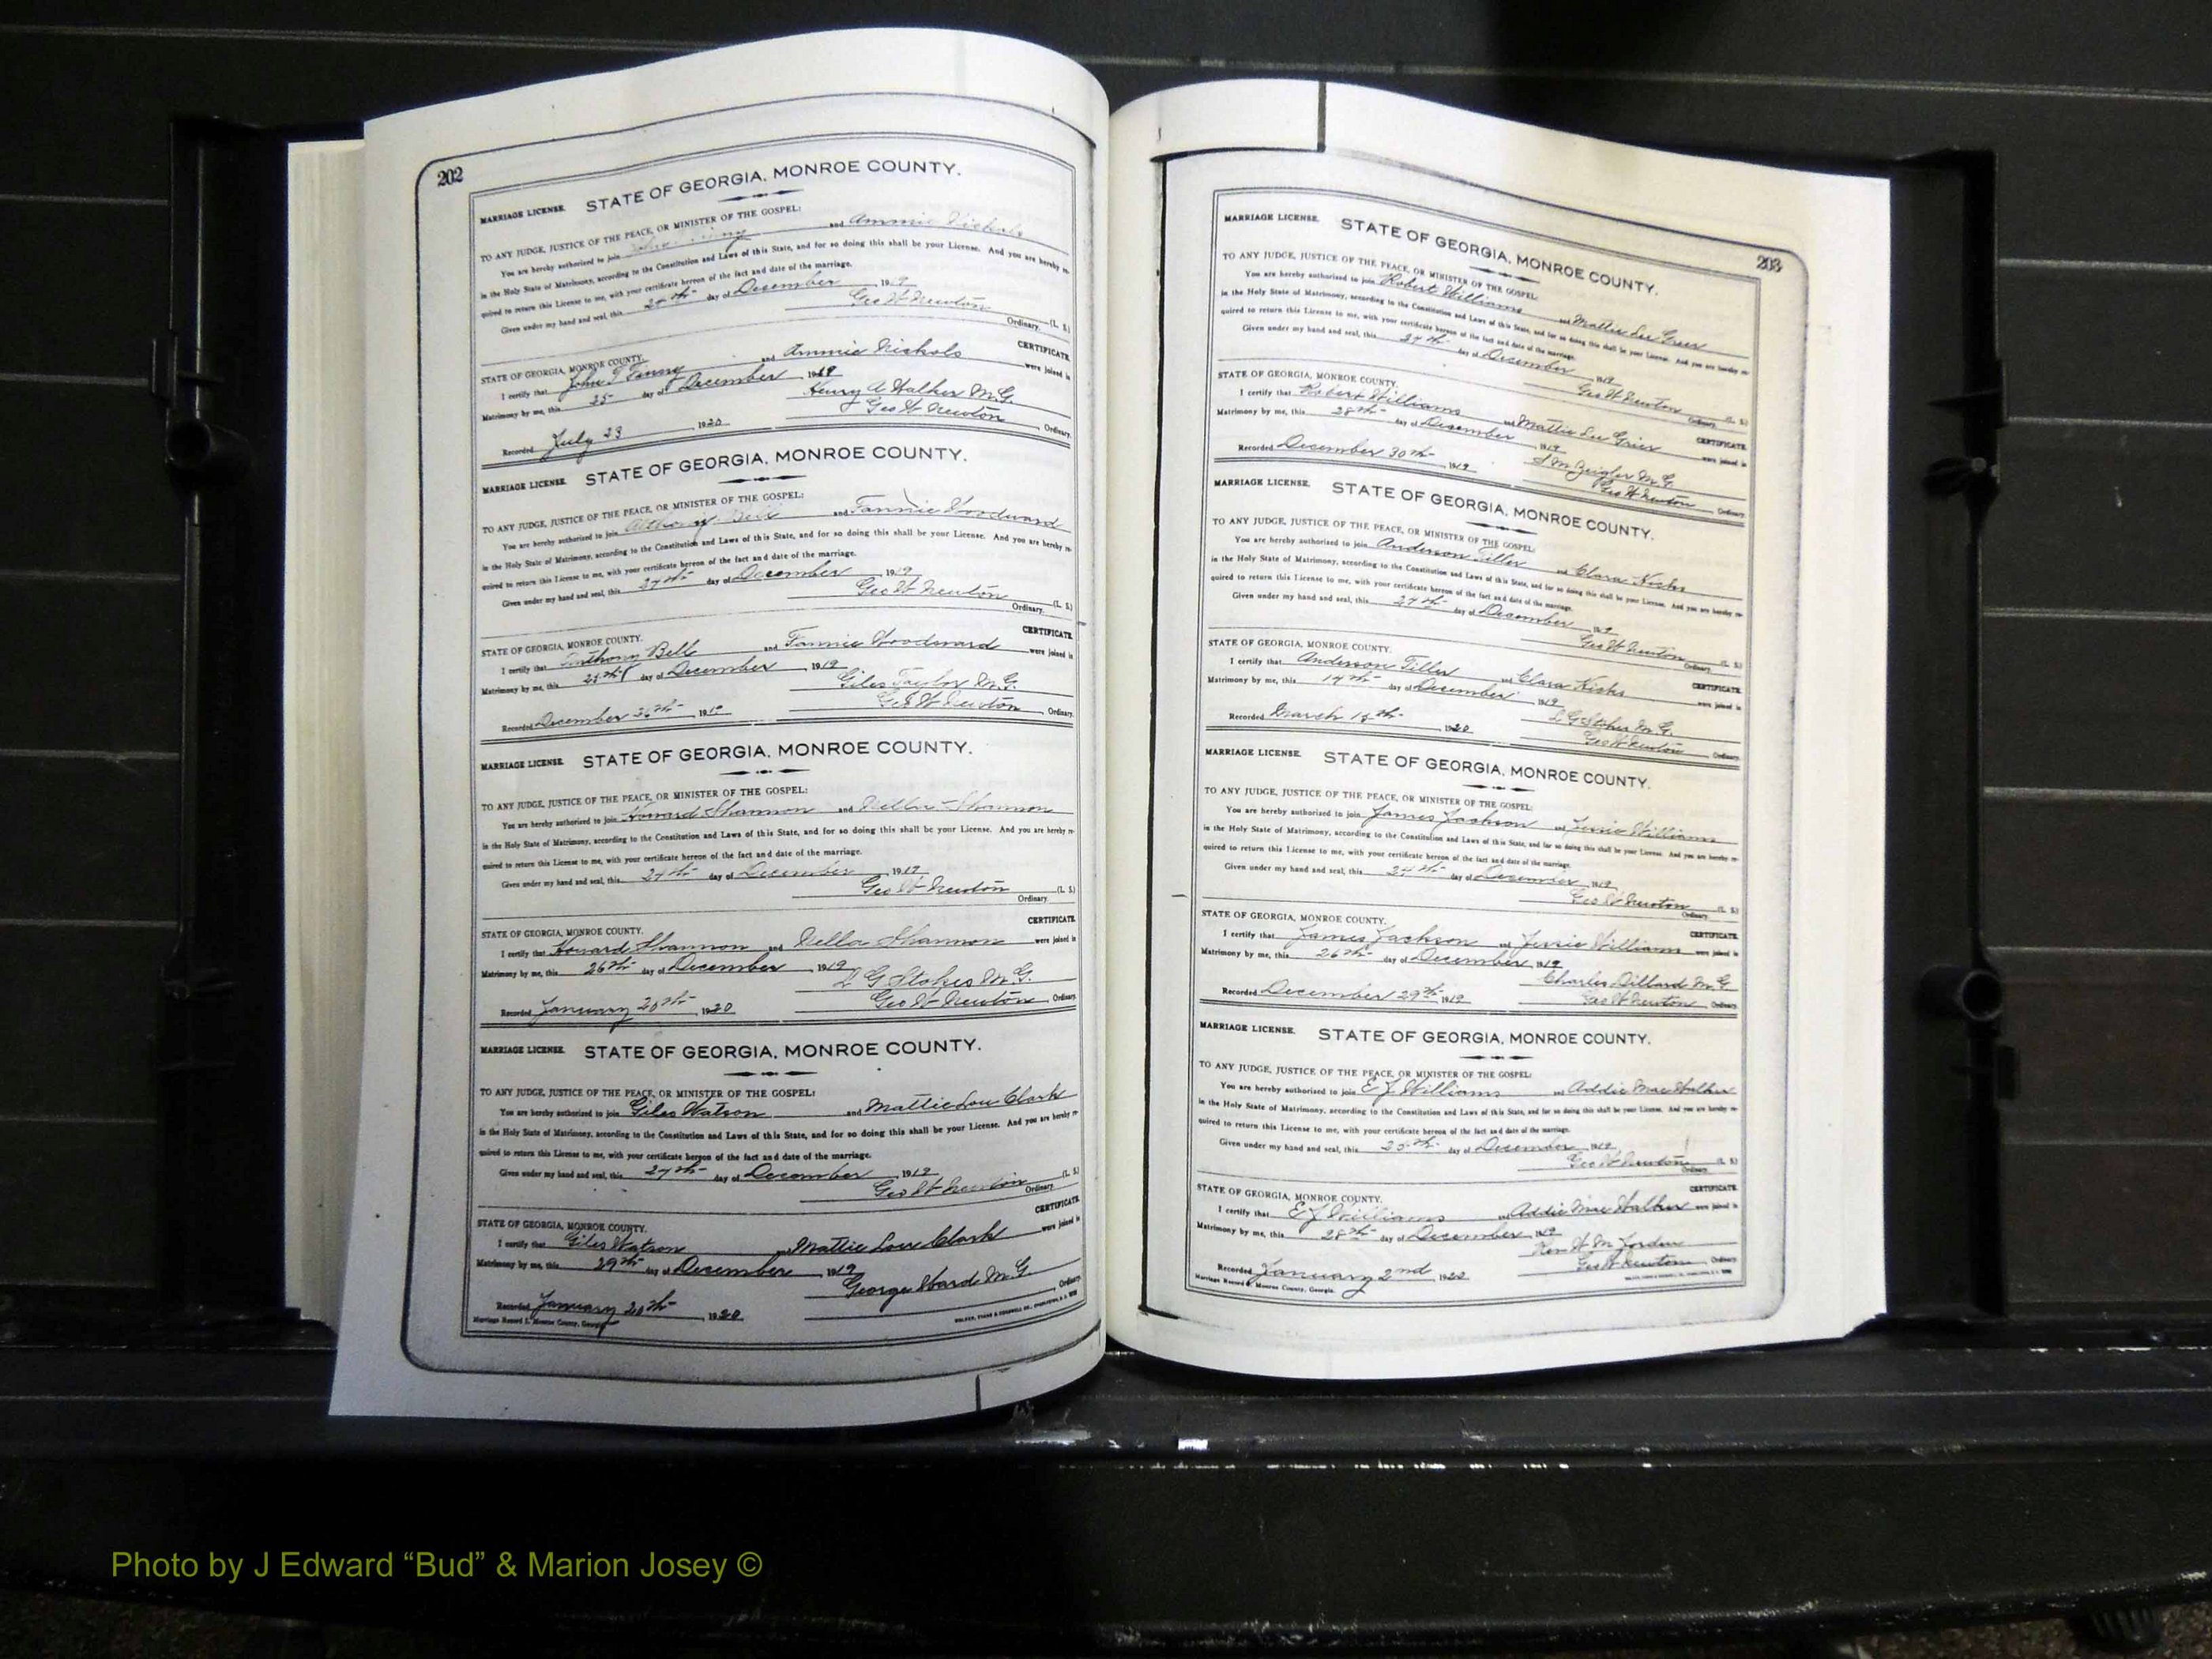 202
MARRIAGE LICENSE. STATE OF GEORGIA, MONROE COUNTY.
TO ANY JUDGE, JUSTICE OF THE PEACE, OR MINISTER OF THE GOSPEL:
You are hereby authorized to join and Ammie Nichols
in the Holy State of Matrimony, according to the Constitution and Laws of this State, and for so doing this shall be your License. And you are hereby re-
quired to return this License to me, with your certificate hereon of the fact and date of the marriage.
Given under my hand and seal, this 24th day of December 1919
Geo W Newton (L. S.)
Ordinary.
STATE OF GEORGIA, MONROE COUNTY. CERTIFICATE.
I certify that John T and Ammie Nichols were joined in
Matrimony by me, this 25 day of December 1919
Henry A Walker M.G.
Recorded July 23 1920 Geo W Newton Ordinary.
MARRIAGE LICENSE. STATE OF GEORGIA, MONROE COUNTY.
TO ANY JUDGE, JUSTICE OF THE PEACE, OR MINISTER OF THE GOSPEL:
You are hereby authorized to join Anthony Bell and Fannie Woodward
in the Holy State of Matrimony, according to the Constitution and Laws of this State, and for so doing this shall be your License. And you are hereby re-
quired to return this License to me, with your certificate hereon of the fact and date of the marriage.
Given under my hand and seal, this 24th day of December 1919
Geo W Newton (L. S.)
Ordinary.
STATE OF GEORGIA, MONROE COUNTY. CERTIFICATE.
I certify that Anthony Bell and Fannie Woodward were joined in
Matrimony by me, this 25th day of December 1919
Giles Taylor M.G.
Recorded December 1919 Geo W Newton Ordinary.
MARRIAGE LICENSE. STATE OF GEORGIA, MONROE COUNTY.
TO ANY JUDGE, JUSTICE OF THE PEACE, OR MINISTER OF THE GOSPEL:
You are hereby authorized to join Howard Shannon and Nella Shannon
in the Holy State of Matrimony, according to the Constitution and Laws of this State, and for so doing this shall be your License. And you are hereby re-
quired to return this License to me, with your certificate hereon of the fact and date of the marriage.
Given under my hand and seal, this 24th day of December 1919
Geo W Newton (L. S.)
Ordinary.
STATE OF GEORGIA, MONROE COUNTY. CERTIFICATE.
I certify that Howard Shannon and Nella Shannon were joined in
Matrimony by me, this 26th day of December 1919
L G Stokes M.G.
Recorded January 20th 1920 Geo W Newton Ordinary.
MARRIAGE LICENSE. STATE OF GEORGIA, MONROE COUNTY.
TO ANY JUDGE, JUSTICE OF THE PEACE, OR MINISTER OF THE GOSPEL:
You are hereby authorized to join Giles Watson and Mattie Lou Clark
in the Holy State of Matrimony, according to the Constitution and Laws of this State, and for so doing this shall be your License. And you are hereby re-
quired to return this License to me, with your certificate hereon of the fact and date of the marriage.
Given under my hand and seal, this 24th day of December 1919
Geo W Newton (L. S.)
Ordinary.
STATE OF GEORGIA, MONROE COUNTY. CERTIFICATE.
I certify that Giles Watson and Mattie Lou Clark were joined in
Matrimony by me, this 29th day of December 1919
George Ward M.G.
Recorded January 20th 1920 Ordinary.
Marriage Record Monroe County, Georgia
203
MARRIAGE LICENSE. STATE OF GEORGIA, MONROE COUNTY.
TO ANY JUDGE, JUSTICE OF THE PEACE, OR MINISTER OF THE GOSPEL:
You are hereby authorized to join Robert Williams and Mattie Lee Greer
in the Holy State of Matrimony, according to the Constitution and Laws of this State, and for so doing this shall be your License. And you are hereby re-
quired to return this License to me, with your certificate hereon of the fact and date of the marriage.
Given under my hand and seal, this 24th day of December 1919
Geo W Newton (L. S.)
Ordinary.
STATE OF GEORGIA, MONROE COUNTY. CERTIFICATE.
I certify that Robert Williams and Mattie Lee Grier were joined in
Matrimony by me, this 28th day of December 1919
S M Zeigler M.G.
Recorded December 30th 1919 Geo W Newton Ordinary.
MARRIAGE LICENSE. STATE OF GEORGIA, MONROE COUNTY.
TO ANY JUDGE, JUSTICE OF THE PEACE, OR MINISTER OF THE GOSPEL:
You are hereby authorized to join Anderson Tiller and Clara
in the Holy State of Matrimony, according to the Constitution and Laws of this State, and for so doing this shall be your License. And you are hereby re-
quired to return this License to me, with your certificate hereon of the fact and date of the marriage.
Given under my hand and seal, this 24th day of December 1919
Geo W Newton (L. S.)
Ordinary.
STATE OF GEORGIA, MONROE COUNTY. CERTIFICATE.
I certify that Anderson Tiller and Clara were joined in
Matrimony by me, this day of December 1919
L G Stokes M.G.
Recorded March 1920 Geo W Newton Ordinary.
MARRIAGE LICENSE. STATE OF GEORGIA, MONROE COUNTY.
TO ANY JUDGE, JUSTICE OF THE PEACE, OR MINISTER OF THE GOSPEL:
You are hereby authorized to join James Jackson and Jessie Williams
in the Holy State of Matrimony, according to the Constitution and Laws of this State, and for so doing this shall be your License. And you are hereby re-
quired to return this License to me, with your certificate hereon of the fact and date of the marriage.
Given under my hand and seal, this 24th day of December 1919
Geo W Newton (L. S.)
Ordinary.
STATE OF GEORGIA, MONROE COUNTY. CERTIFICATE.
I certify that James Jackson and Jessie Williams were joined in
Matrimony by me, this 26th day of December 1919
Charles Dillard M.G.
Recorded December 29th 1919 Geo W Newton Ordinary.
MARRIAGE LICENSE. STATE OF GEORGIA, MONROE COUNTY.
TO ANY JUDGE, JUSTICE OF THE PEACE, OR MINISTER OF THE GOSPEL:
You are hereby authorized to join E J Williams and Addie Mae Walker
in the Holy State of Matrimony, according to the Constitution and Laws of this State, and for so doing this shall be your License. And you are hereby re-
quired to return this License to me, with your certificate hereon of the fact and date of the marriage.
Given under my hand and seal, this 25th day of December 1919
Geo W Newton (L. S.)
Ordinary.
STATE OF GEORGIA, MONROE COUNTY. CERTIFICATE.
I certify that E J Williams and Addie Mae Walker were joined in
Matrimony by me, this 28th day of December 1919
Rev W M Jordan
Recorded January 2nd 1920 Geo W Newton Ordinary
Marriage Record Monroe County, Georgia.
Photo by J Edward “Bud” & Marion Josey ©